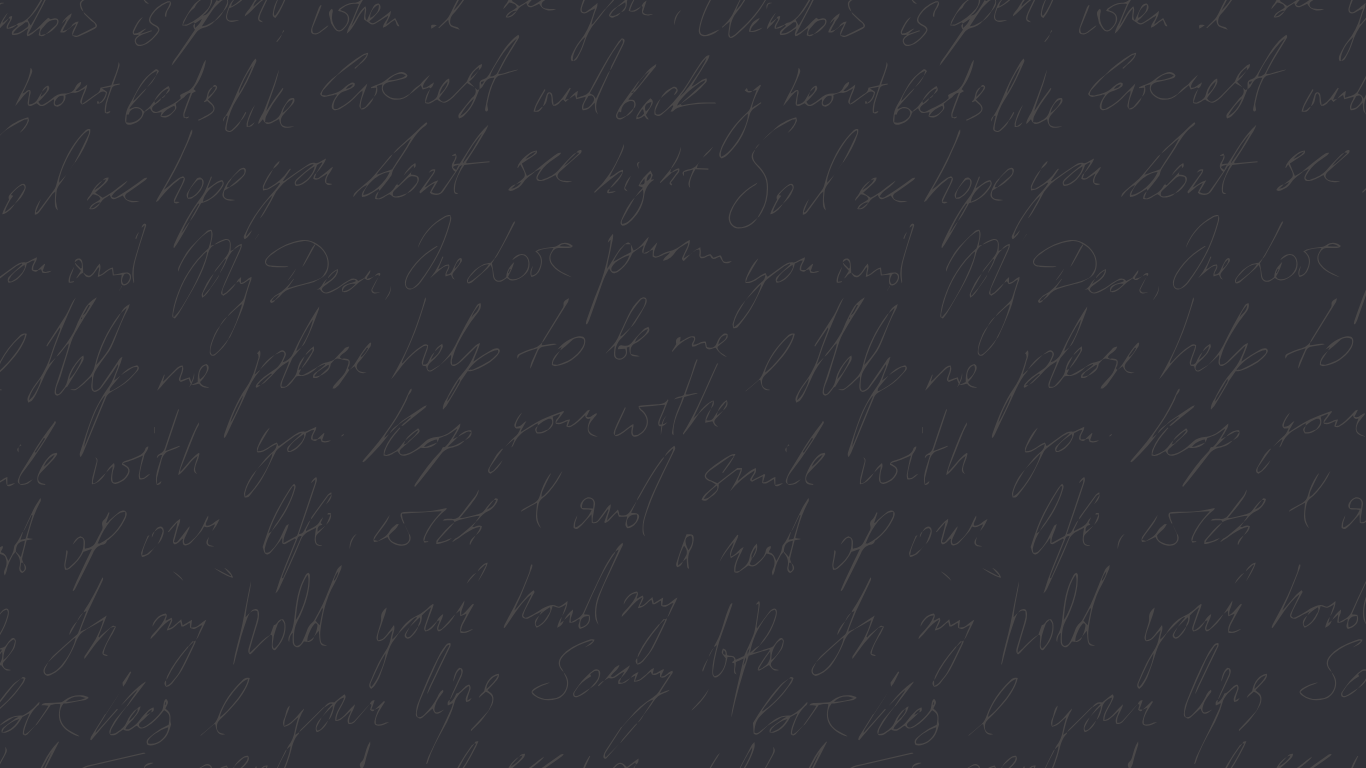 Windows is open, when I see you, Windows is open, when I see y
heart beats like Everest and back y heart beats like Everest and
So I see hope you don't see hight So I see hope you don't see
you and My Dear, The Love you and My Dear, The Love
I Help me please help to be me I Help me please help to
smile with you. Keep your smile with you. Keep your
rest of our life, with I and a rest of our life, with I a
In my hold your hand my In my hold your hand
love kiss I your lips Sorry, love kiss I your lips So